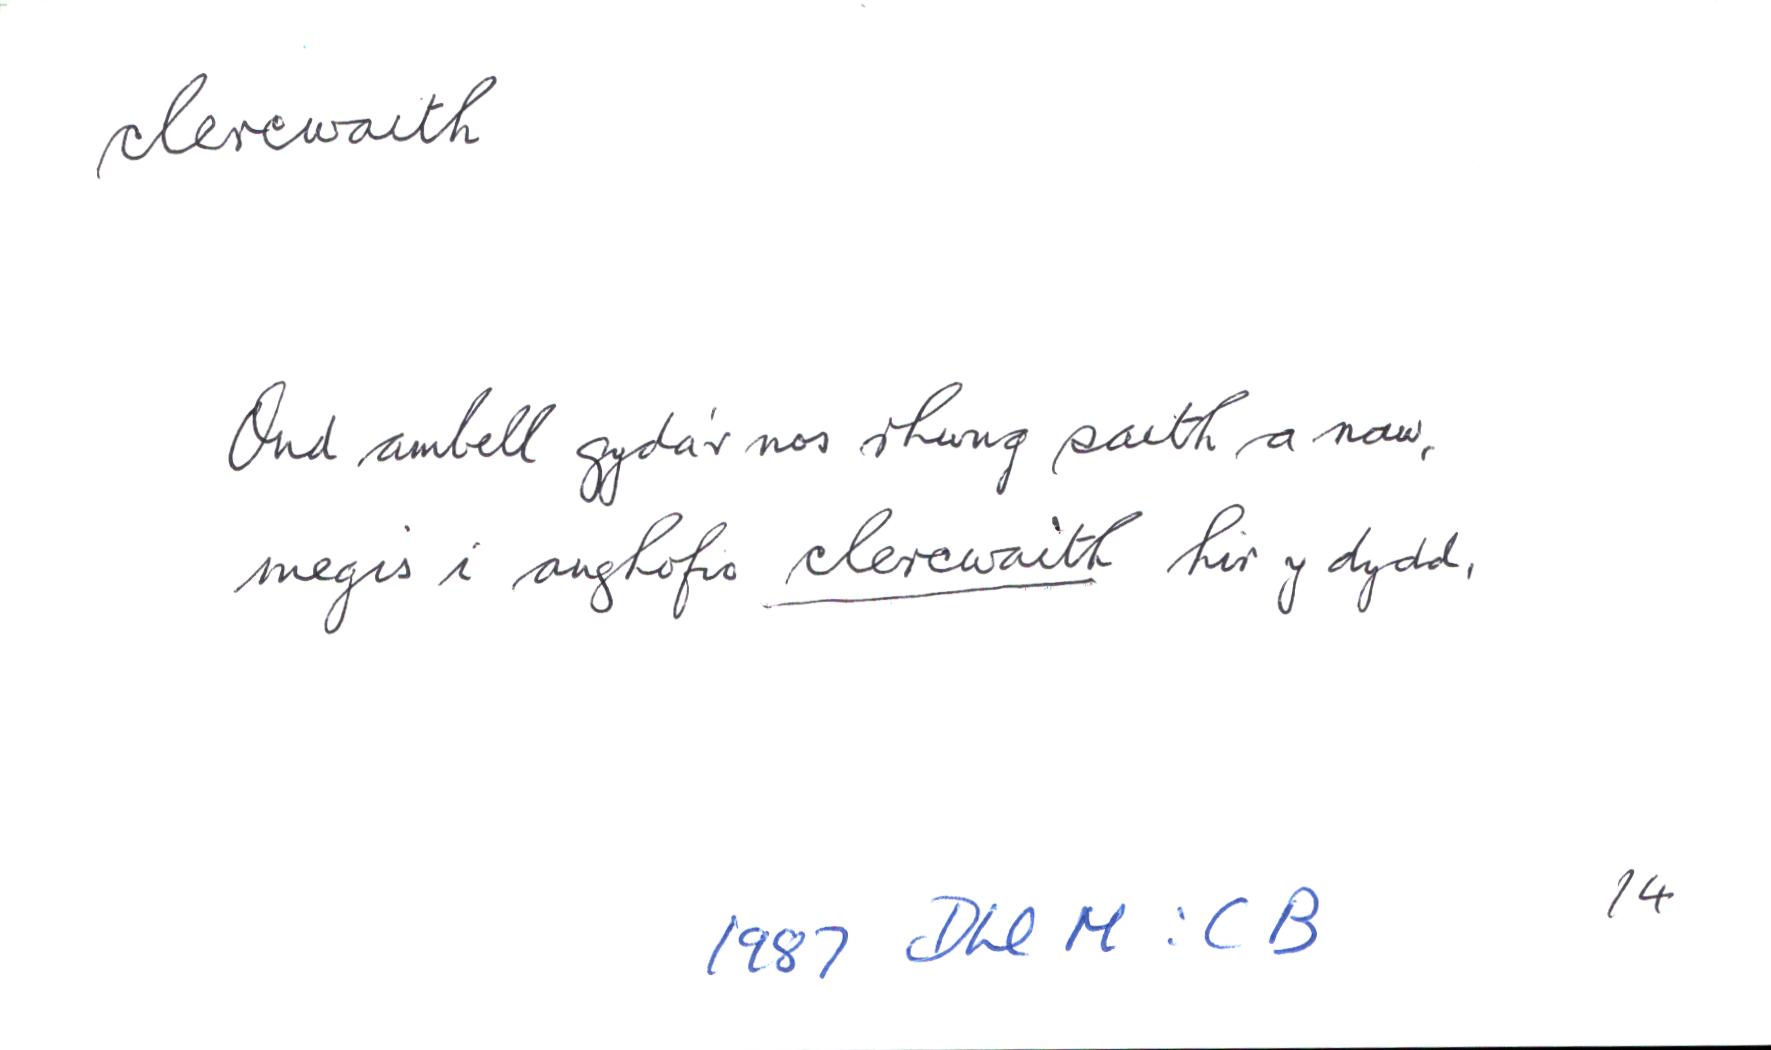 clercwaith
Ond ambell gyda'r nos rhwng saith a naw,
megis i anghofio clercwaith hir y dydd,
14
1987 DLlM : CB